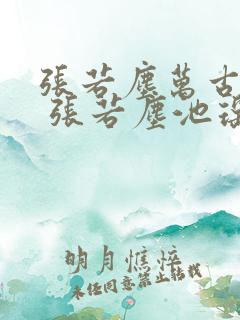 張若塵萬古
張若塵池瑤
明月憔悴
未經同意禁止轉載